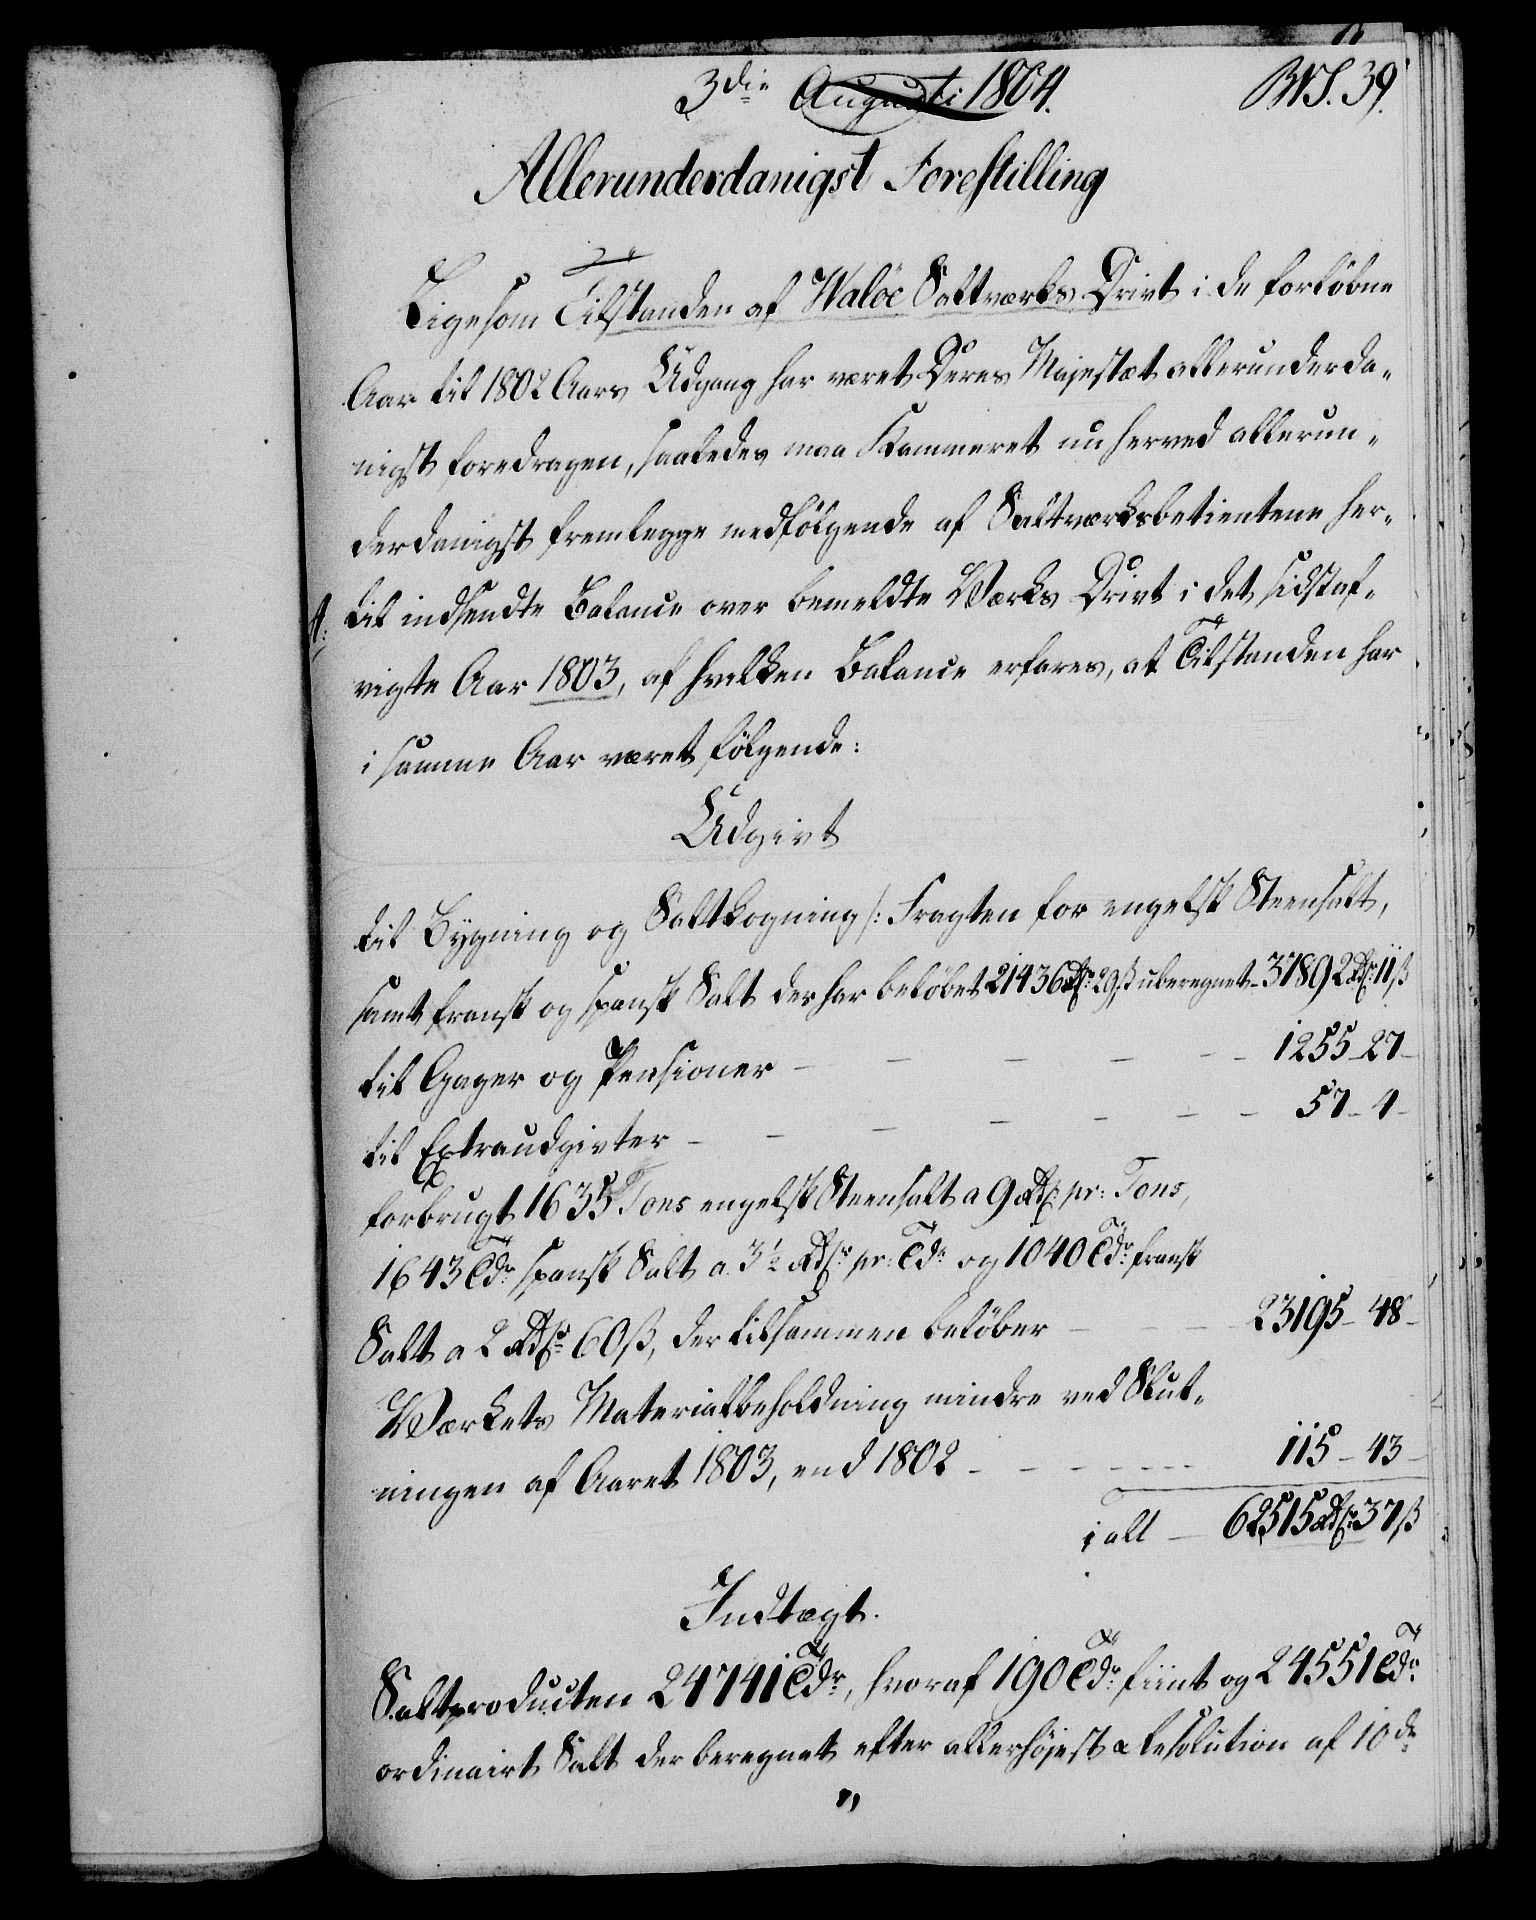 3die Augusti 1804.
BVS. 39.
Allerunderdanigst Forestilling
Ligesom Tilstanden af Waløe Saltværks Drivt i de forløbne
Aar til 1802 Aars Udgang har været Deres Majestæt allerunderda-
nigst foredragen, saaledes maa Kammeret nu herved allerun-
derdanigst fremlegge medfølgende af Saltværksbetientene her-
til indsendte Balance over bemeldte Værks Drivt i det sidstaf-
vigte Aar 1803, af hvilken Balance erfares, at Tilstanden har
i samme Aar været følgende:
Udgivt
til Bygning og Saltkogning /: Fragten for engelsk Steensalt,
samt fransk og spansk Salt der har beløbet 21436 Rdr 29 ß uberegnet - 37892 Rdr 11 ß
til Gager og Pensioner - - - - - 1255 - 27 -
til Extraudgivter - - - - - - 57 - 4 -
forbrugt 1635 Tons engelsk Steensalt a 9 Rdr pr: Tons,
1643 Tdr spansk Salt a 3½ Rdr pr: Tde og 1040 Tdr fransk
Salt a 2 Rdr 60 ß, der tilsammen beløber - - - 23195 - 48 -
Værkets Materialbeholdning mindre ved Slut-
ningen af Aaret 1803, end 1802 - - - - - 115 - 43 -
i alt - 62515 Rdr 37 ß
Indtægt.
Saltproducten 24741 Tdr, hvoraf 190 Tdr fiint og 24551 Tdr
ordinairt Salt der beregnet efter allerhøjest Resolution af 10de